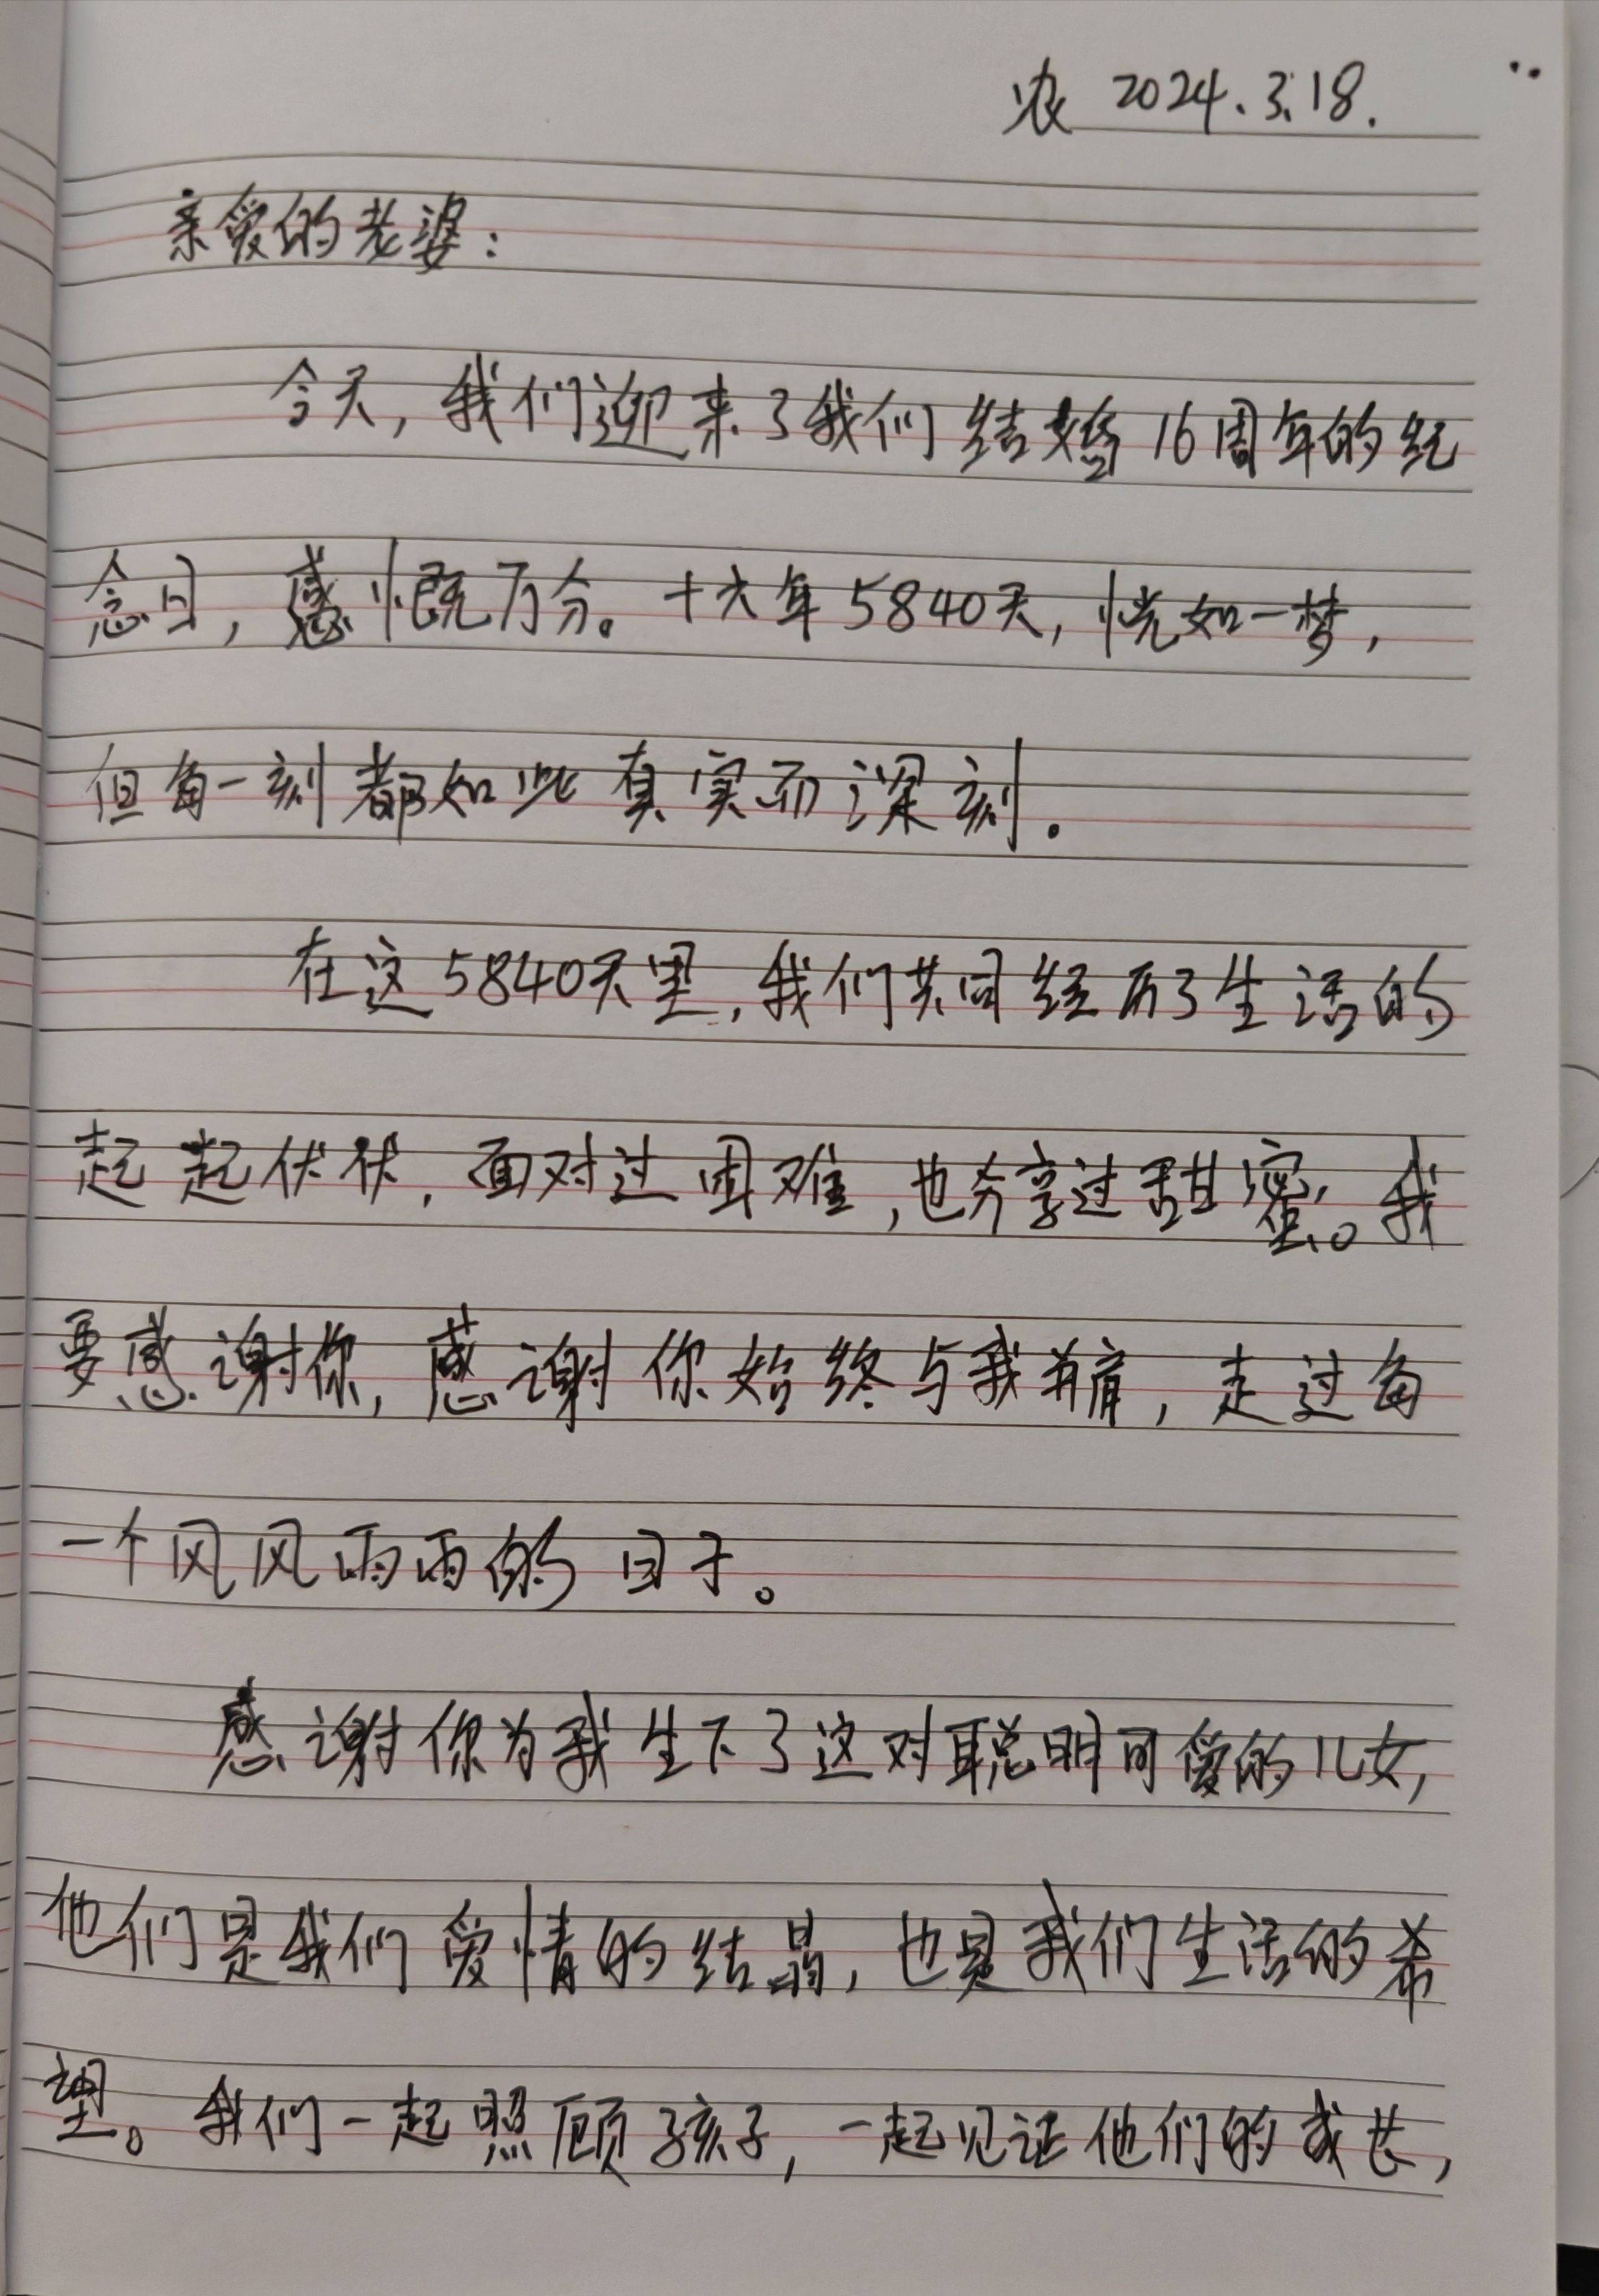 农 2024.3.18.
亲爱的老婆：
今天，我们迎来了我们结婚16周年的纪
念日，感慨万分。十六年5840天，恍如一梦，
但每一刻都如此真实而深刻.
在这5840天里，我们共同经历了生活的
起起伏伏，面对过困难，也分享过甜蜜。我
要感谢你，感谢你始终与我并肩，走过每
一个风风雨雨的日子。
感谢你为我生下了这对聪明可爱的儿女，
他们是我们爱情的结晶，也是我们生活的希
望。我们一起照顾孩子，一起见证他们的成长，